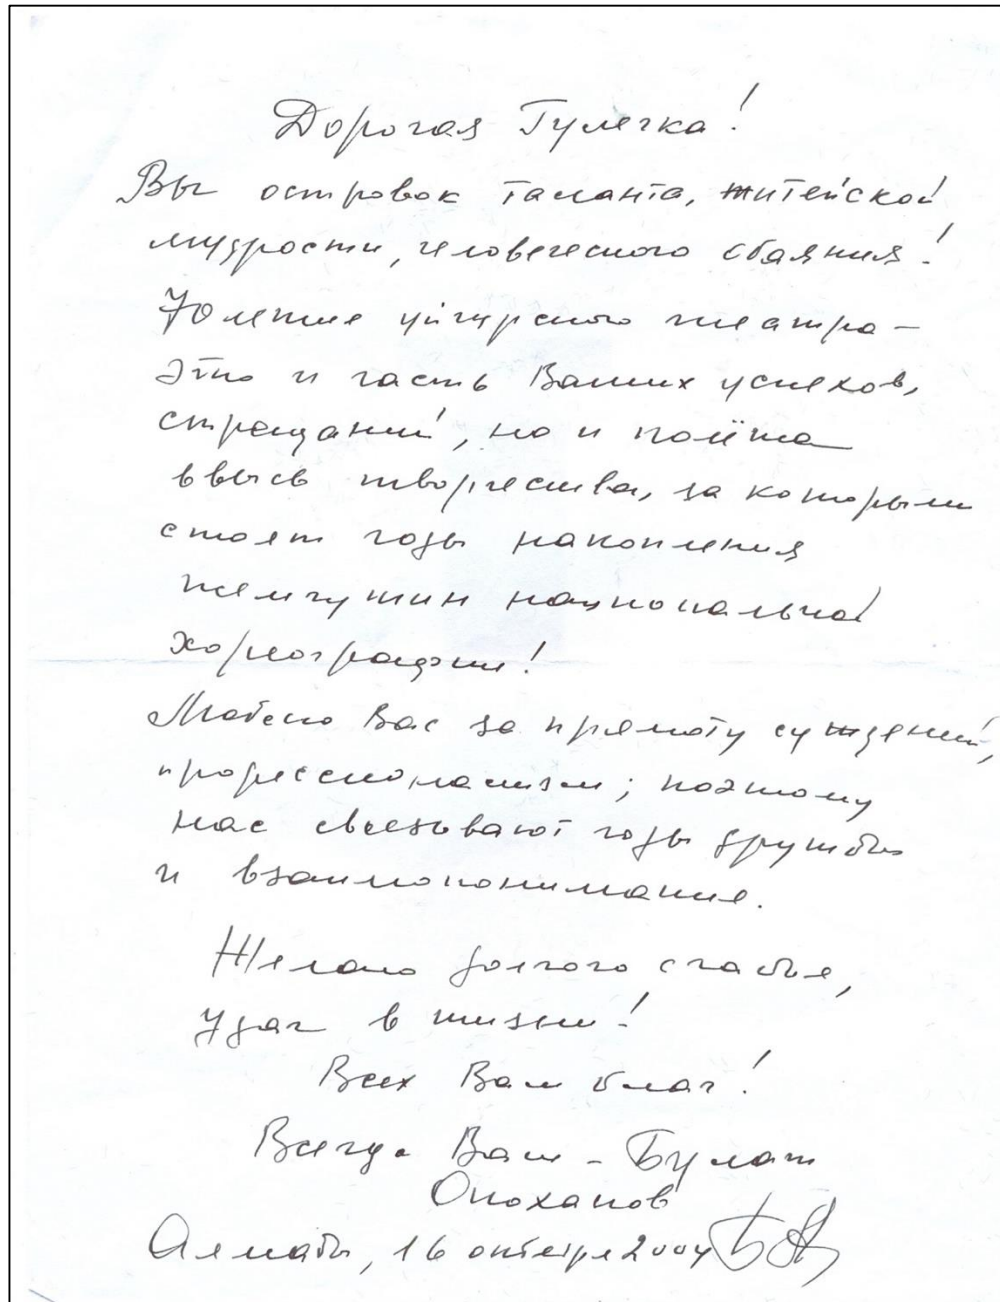 Дорогая Гулечка!
Вы островок таланта, житейской
мудрости, человеческого обаяния!
70 летие уйгурского театра –
это и часть Ваших успехов,
страданий, но и полёта
ввысь творчества, за которым
стоят годы накопления
жемчужин национальной
хореографии!
Люблю Вас за прямоту суждений,
профессионализм; поэтому
нас связывают годы дружбы
и взаимопонимания.
Желаю долгого счастья,
удач в жизни!
Всех Вам благ!
Всегда Ваш – Булат
Аюханов
Алматы, 16 октября 2004